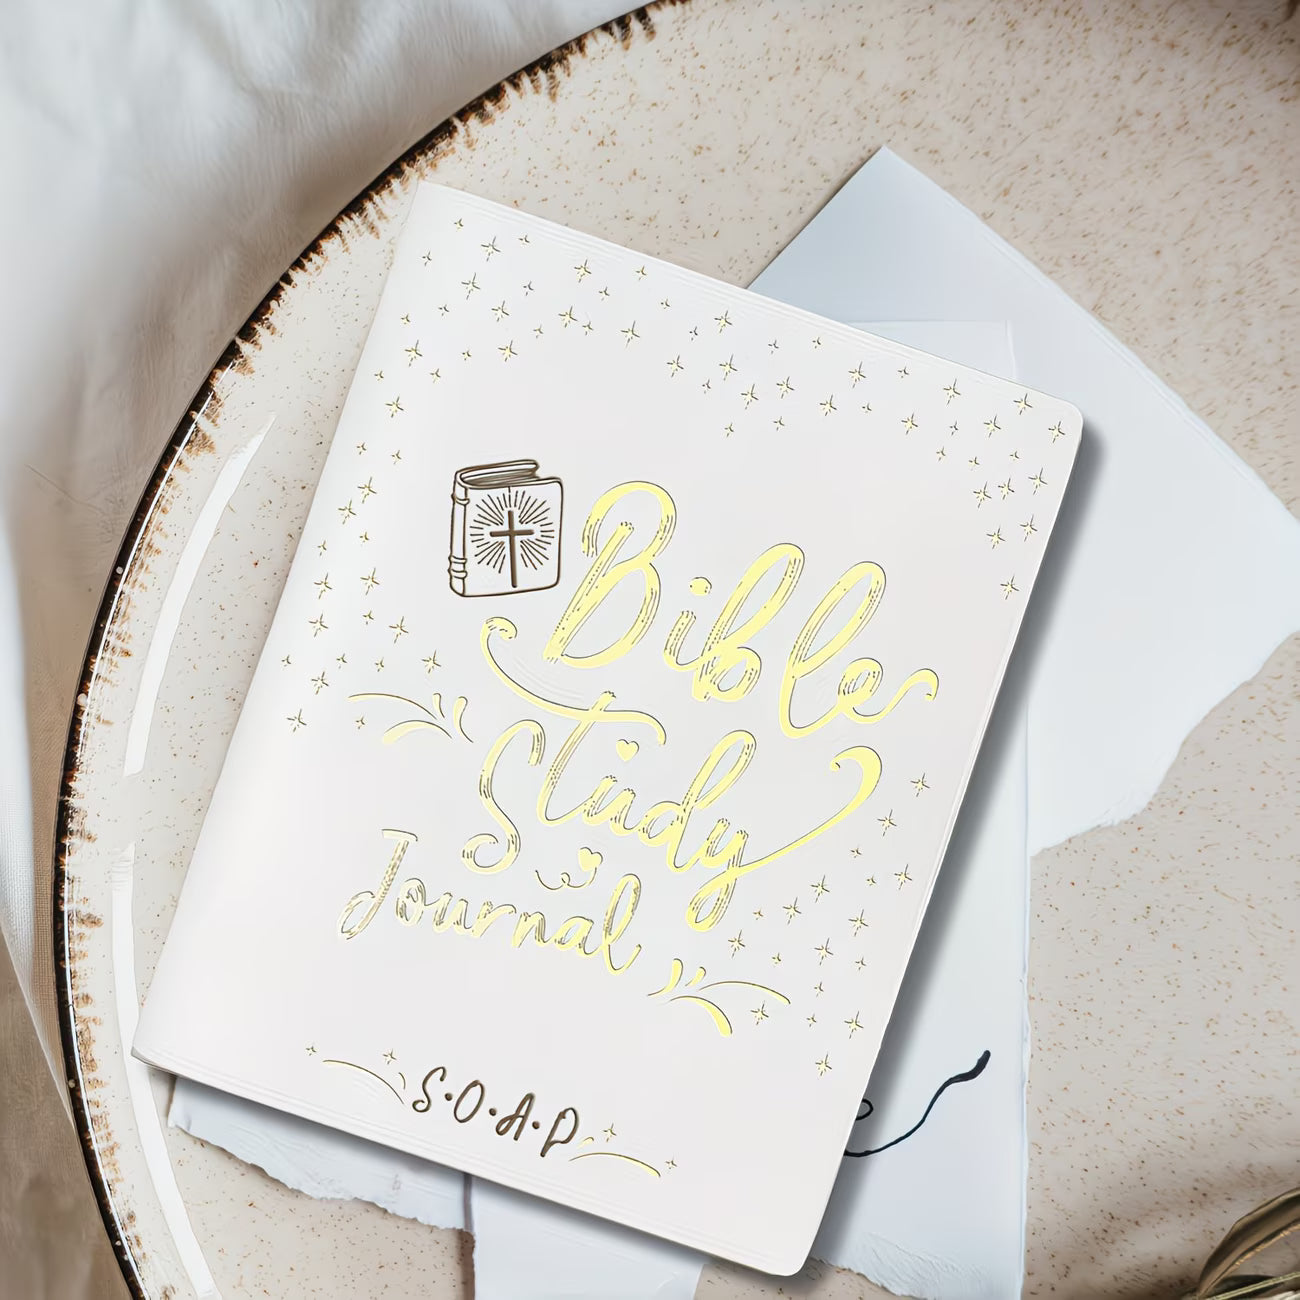 Bible
Study
Journal
S·O·A·P